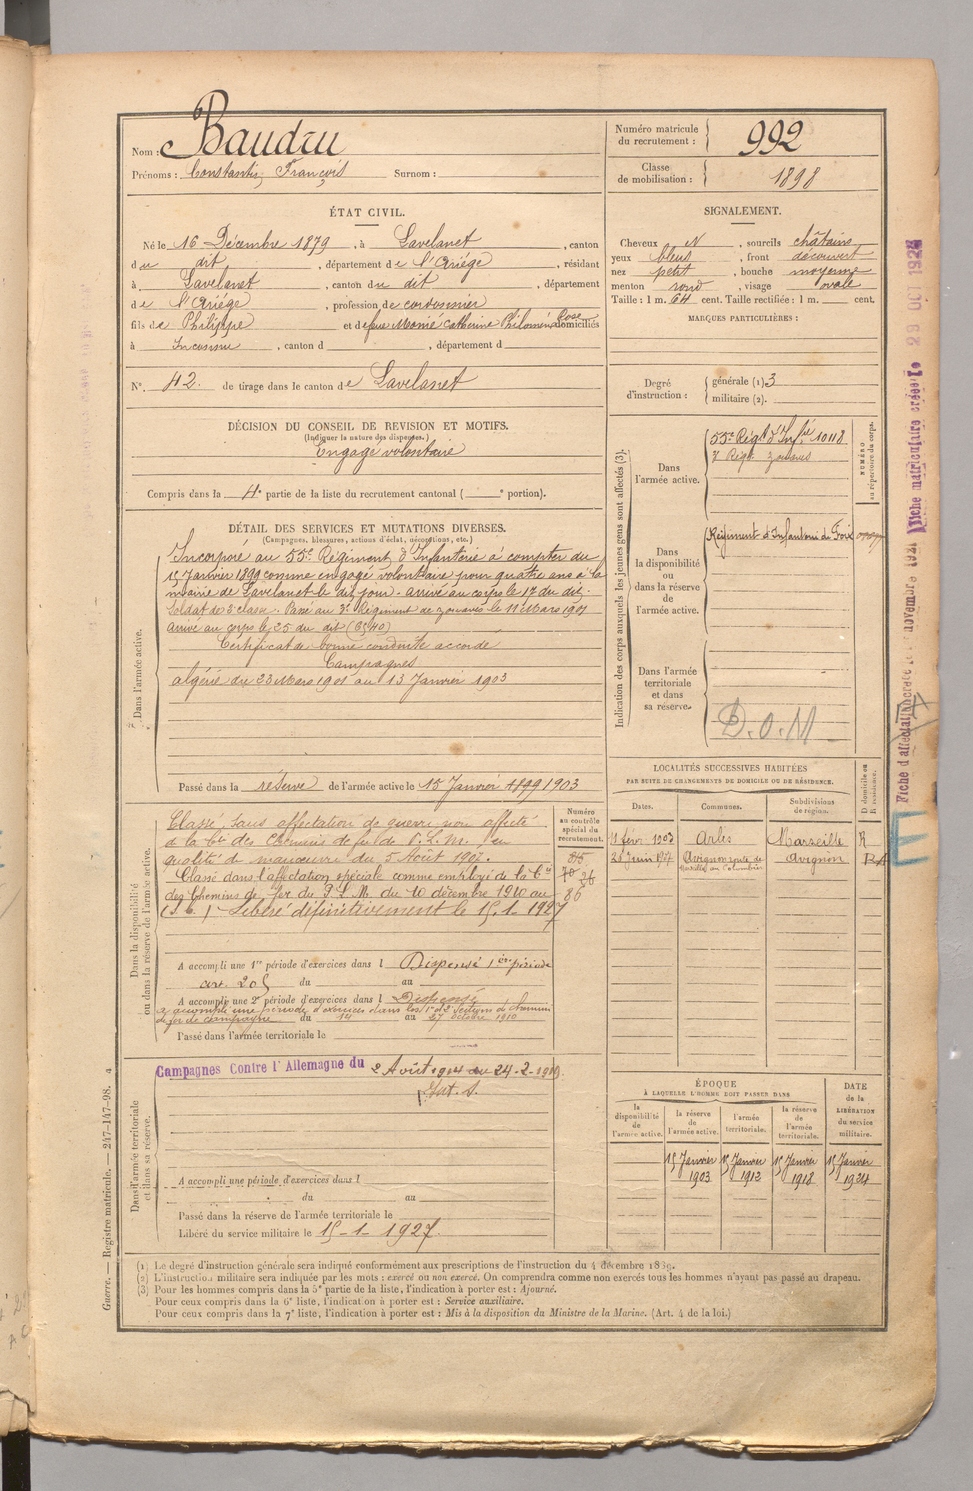 Nom : Baudru
Prénoms : Constantin, François Surnom :
Numéro matricule du recrutement : 992
Classe de mobilisation : 1898
ÉTAT CIVIL.
Né le 16 Décembre 1879, à Lavelanet, canton
du dit, département de l'Ariége, résidant
à Lavelanet, canton du dit, département
de l'Ariége, profession de cordonnier
fils de Philippe et de feue Monié Catherine Philomène Rose domiciliés
à Inconnu, canton d , département d
N°. 42. de tirage dans le canton de Lavelanet
SIGNALEMENT.
Cheveux N, sourcils châtains
yeux bleus, front découvert
nez petit, bouche moyenne
menton rond, visage ovale
Taille : 1 m. 64 cent. Taille rectifiée : 1 m. cent.
MARQUES PARTICULIÈRES :
Degré d'instruction : générale (1) 3
militaire (2).
DÉCISION DU CONSEIL DE REVISION ET MOTIFS.
(Indiquer la nature des dispenses.)
Engagé volontaire
Compris dans la 4e partie de la liste du recrutement cantonal ( e portion).
DÉTAIL DES SERVICES ET MUTATIONS DIVERSES.
(Campagnes, blessures, actions d'éclat, décorations, etc.)
Dans l'armée active.
Incorporé au 55e Régiment d'Infanterie à compter du
15 Janvier 1899 comme engagé volontaire pour quatre ans à la
mairie de Lavelanet le dit jour. arrivé au corps le 17 du dit.
Soldat de 2e classe. Passé au 3e Régiment de zouaves le 11 Mars 1901
arrivé au corps le 25 du dit
Certificat de bonne conduite accordé
Campagnes
algérie du 23 Mars 1901 au 13 Janvier 1903
Passé dans la réserve de l'armée active le 15 Janvier 1899 1903
Indication des corps auxquels les jeunes gens sont affectés (3).
NUMÉRO au répertoire du corps.
Dans l'armée active.
55e Régt d'Infie 10118
3 Régt zouaves
Dans la disponibilité ou dans la réserve de l'armée active.
Régiment d'Infanterie de Foix
Dans l'armée territoriale et dans sa réserve.
D.O.M
LOCALITÉS SUCCESSIVES HABITÉES
PAR SUITE DE CHANGEMENTS DE DOMICILE OU DE RÉSIDENCE.
Dates. Communes. Subdivisions de région. D domicile ou R résidence.
févr. 1903 Arles Marseille R
Juin Avignon route de Avignon
Dans la disponibilité ou dans la réserve de l'armée active.
Numéro au contrôle spécial du recrutement.
Classé sans affectation de guerre non affecté
à la Cie des Chemins de fer de P.L.M. en
qualité de manœuvre du 5 Août 1902.
Classé dans l'affectation spéciale comme employé de la Cie
des Chemins de fer du P.L.M. du 10 décembre 1910 au
Libéré définitivement le 15.1.1927
A accompli une 1re période d'exercices dans l Dispensé 1ère période
art. 205 du au
A accompli une 2e période d'exercices dans l Dispensé
a accompli une période d'exercices dans les 1e et 2e Sections de chemins
de fer de campagne du 14 au 27 octobre 1910
Passé dans l'armée territoriale le
Dans l'armée territoriale et dans sa réserve.
Campagnes Contre l'Allemagne du 2 Août 1914 au 24-2-1919.
A accompli une période d'exercices dans l
du au
Passé dans la réserve de l'armée territoriale le
Libéré du service militaire le 15-1-1927.
ÉPOQUE
À LAQUELLE L'HOMME DOIT PASSER DANS
la disponibilité de l'armée active. la réserve de l'armée active. l'armée territoriale. la réserve de l'armée territoriale.
DATE de la LIBÉRATION du service militaire.
15 Janvier 1903 15 Janvier 1912 15 Janvier 1918 15 Janvier 1924
(1) Le degré d'instruction générale sera indiqué conformément aux prescriptions de l'instruction du 4 décembre 1889.
(2) L'instruction militaire sera indiquée par les mots : exercé ou non exercé. On comprendra comme non exercés tous les hommes n'ayant pas passé au drapeau.
(3) Pour les hommes compris dans la 5e partie de la liste, l'indication à porter est : Ajourné.
Pour ceux compris dans la 6e liste, l'indication à porter est : Service auxiliaire.
Pour ceux compris dans la 7e liste, l'indication à porter est : Mis à la disposition du Ministre de la Marine. (Art. 4 de la loi.)
Guerre. — Registre matricule. — 247-147-98.